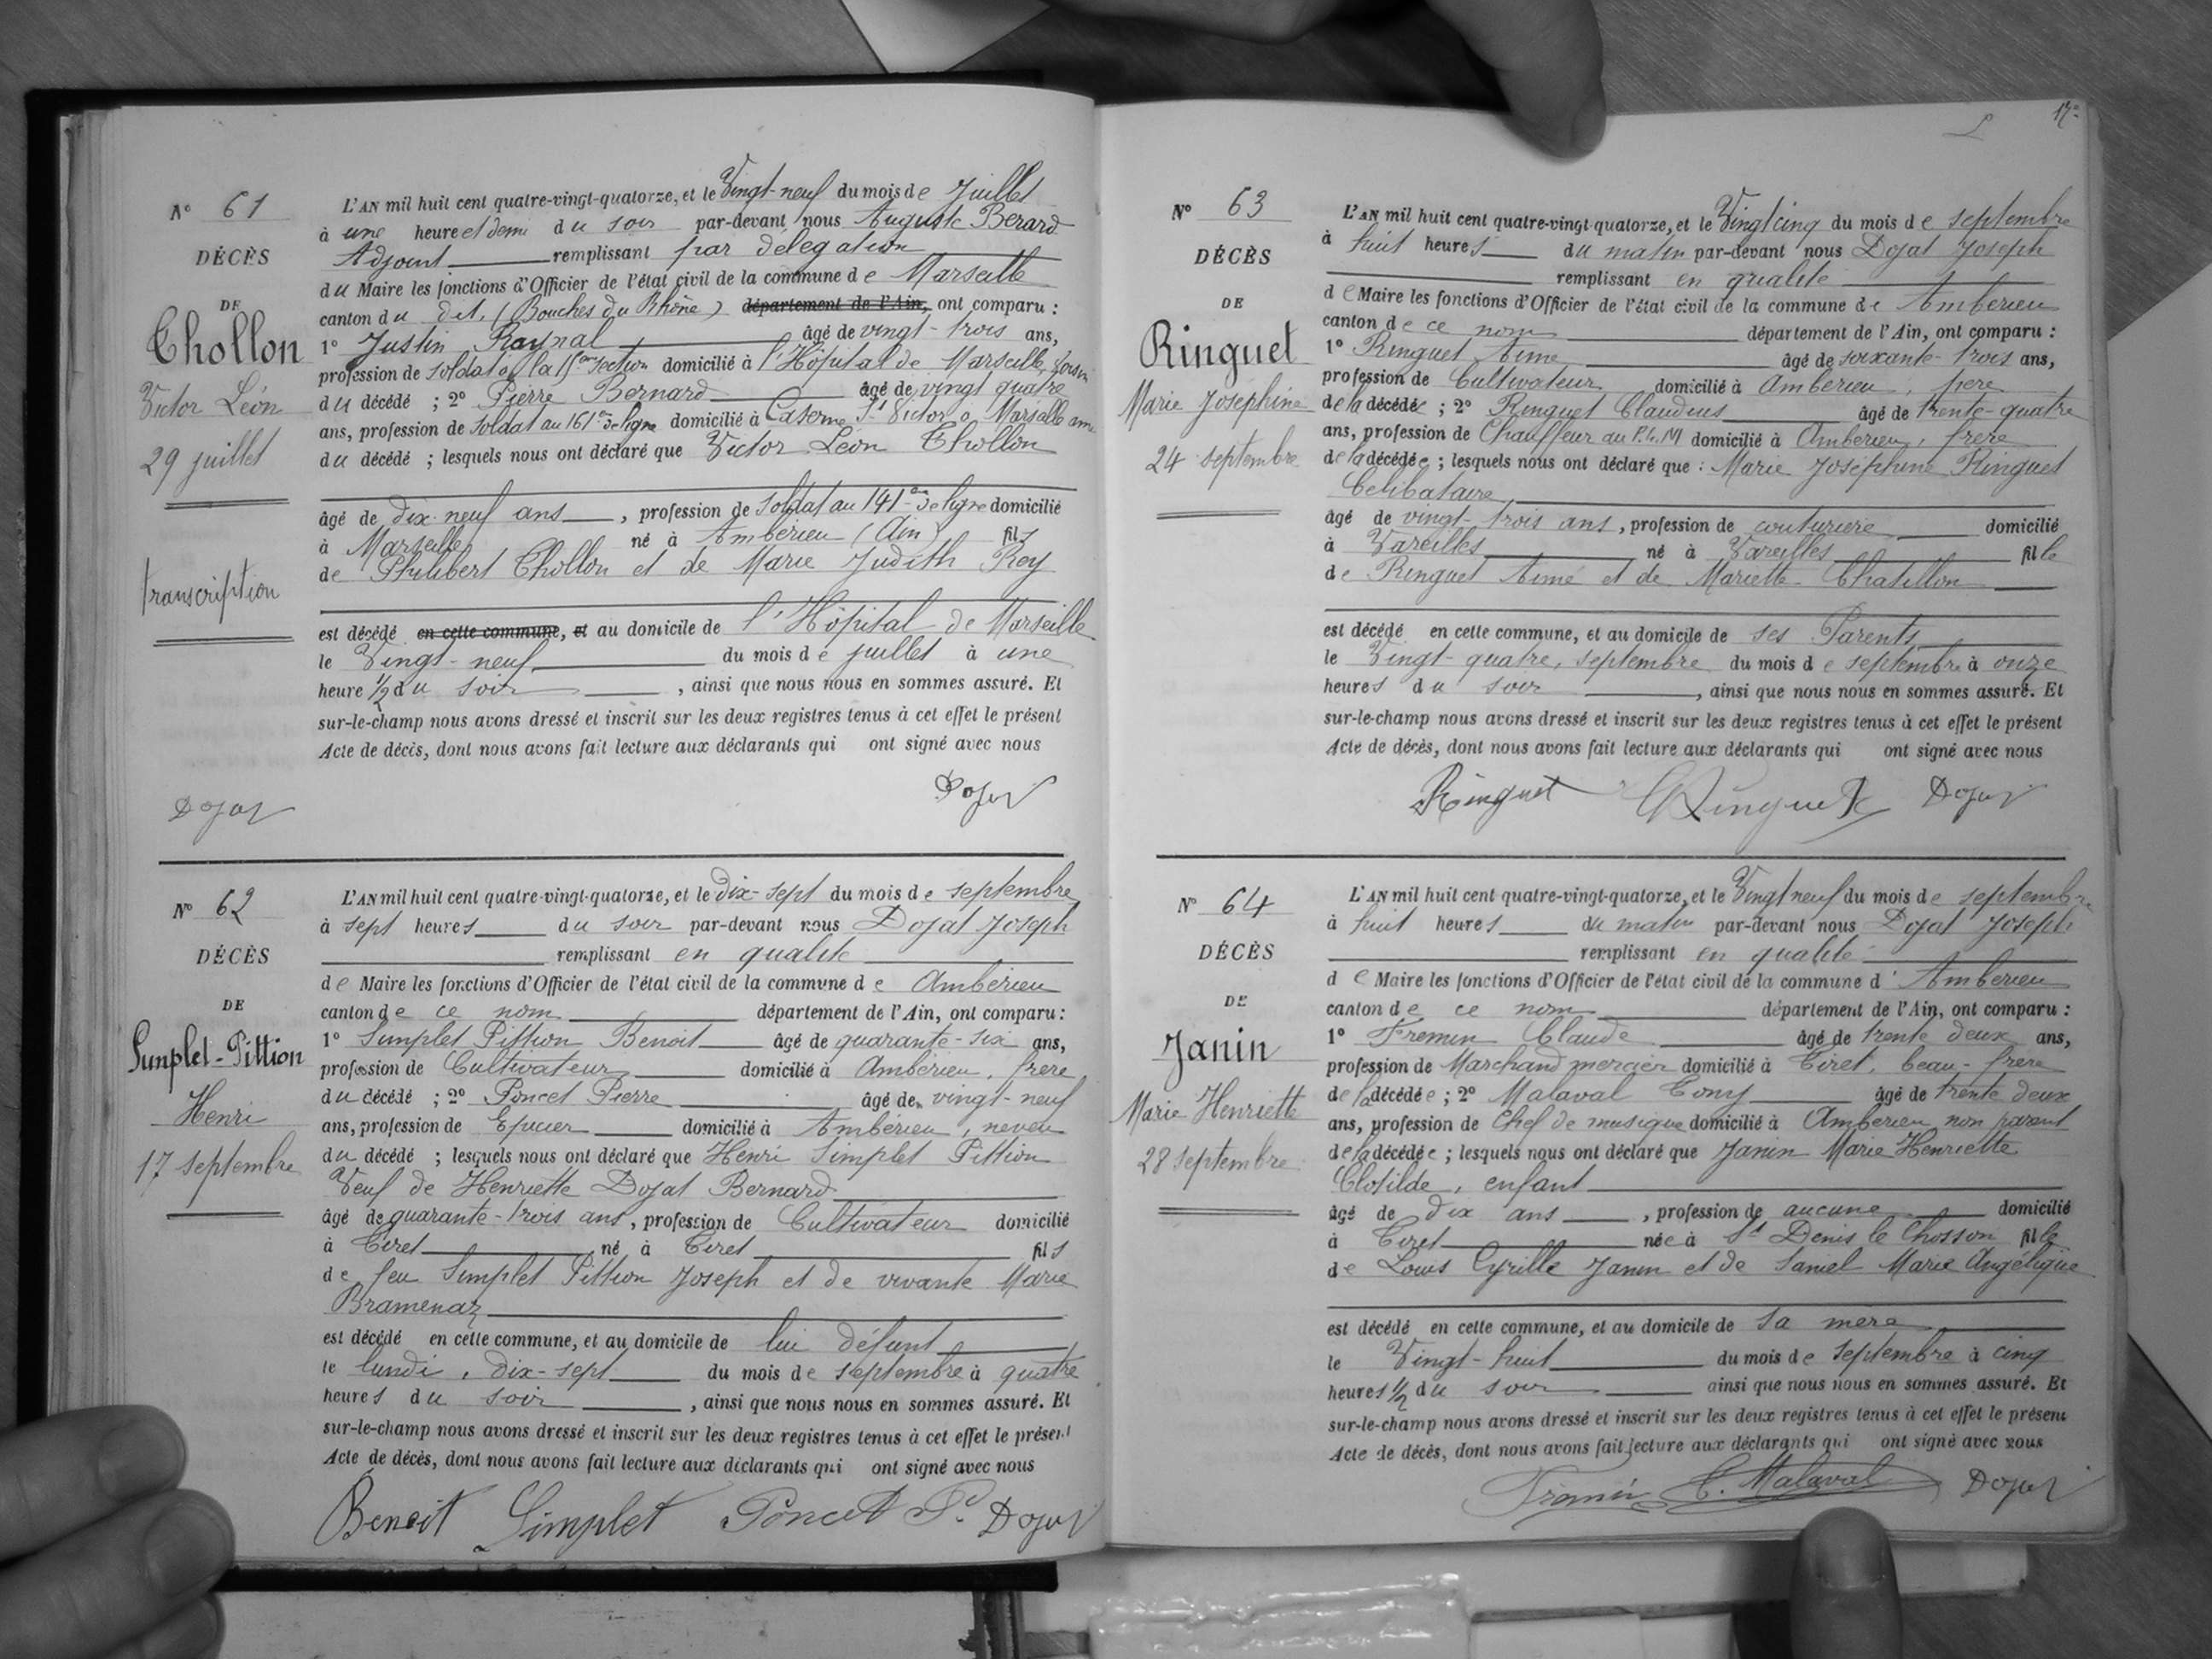 N° 61
DÉCÈS
DE
Chollon
Victor Léon
29 juillet
transcription
L'AN mil huit cent quatre-vingt-quatorze, et le Vingt-neuf du mois de Juillet
à une heure et demi du soir par-devant nous Auguste Berard
Adjoint remplissant par délégation
du Maire les fonctions d'Officier de l'état civil de la commune de Marseille
canton du dit, (Bouches du Rhône) département de l'Ain, ont comparu :
1° Justin Raynal âgé de vingt-trois ans,
profession de soldat à la 15eme section domicilié à l'Hôpital de Marseille, voisin
du décédé ; 2° Pierre Bernard âgé de vingt quatre
ans, profession de Soldat au 161e de ligne domicilié à Caserne St Victor à Marseille ami
du décédé ; lesquels nous ont déclaré que Victor Léon Chollon
âgé de dix neuf ans, profession de Soldat au 141e de ligne domicilié
à Marseille né à Ambérieu (Ain) fils
de Philibert Chollon et de Marie Judith Rey
est décédé en cette commune, et au domicile de l'Hôpital de Marseille
le Vingt-neuf du mois de juillet à une
heure 1/2 du soir, ainsi que nous nous en sommes assuré. Et
sur-le-champ nous avons dressé et inscrit sur les deux registres tenus à cet effet le présent
Acte de décès, dont nous avons fait lecture aux déclarants qui ont signé avec nous
Dojat
Dojat
N° 62
DÉCÈS
DE
Simplet-Pittion
Henri
17 septembre
L'AN mil huit cent quatre-vingt-quatorze, et le dix-sept du mois de septembre
à sept heures du soir par-devant nous Dojat Joseph
remplissant en qualité
de Maire les fonctions d'Officier de l'état civil de la commune de Ambérieu
canton de ce nom département de l'Ain, ont comparu :
1° Simplet Pittion Benoit âgé de quarante-six ans,
profession de Cultivateur domicilié à Ambérieu, frère
du décédé ; 2° Poncet Pierre âgé de vingt-neuf
ans, profession de Epicier domicilié à Ambérieu, neveu
du décédé ; lesquels nous ont déclaré que Henri Simplet Pittion
Veuf de Henriette Dojat Bernard
âgé de quarante-trois ans, profession de Cultivateur domicilié
à Tiret né à Tiret fils
de feu Simplet Pittion Joseph et de vivante Marie
Bramenaz
est décédé en cette commune, et au domicile de lui défunt
le lundi, dix-sept du mois de septembre à quatre
heures du soir, ainsi que nous nous en sommes assuré. Et
sur-le-champ nous avons dressé et inscrit sur les deux registres tenus à cet effet le présent
Acte de décès, dont nous avons fait lecture aux déclarants qui ont signé avec nous
Benoit Simplet Poncet P. Dojat
17
N° 63
DÉCÈS
DE
Ringuet
Marie Joséphine
24 septembre
L'AN mil huit cent quatre-vingt-quatorze, et le Vingt cinq du mois de septembre
à huit heures du matin par-devant nous Dojat Joseph
remplissant en qualité
de Maire les fonctions d'Officier de l'état civil de la commune de Ambérieu
canton de ce nom département de l'Ain, ont comparu :
1° Ringuet Aimé âgé de soixante-trois ans,
profession de Cultivateur domicilié à Ambérieu, père
de la décédée ; 2° Ringuet Claudius âgé de trente-quatre
ans, profession de Chauffeur au P.L.M domicilié à Ambérieu, frère
de la décédée ; lesquels nous ont déclaré que : Marie Joséphine Ringuet
Célibataire
âgé de vingt-trois ans, profession de couturière domicilié
à Vareilles né à Vareilles fille
de Ringuet Aimé et de Mariette Chatillon
est décédé en cette commune, et au domicile de ses Parents
le Vingt-quatre, septembre du mois de septembre à onze
heures du soir, ainsi que nous nous en sommes assuré. Et
sur-le-champ nous avons dressé et inscrit sur les deux registres tenus à cet effet le présent
Acte de décès, dont nous avons fait lecture aux déclarants qui ont signé avec nous
Ringuet C Ringuet Dojat
N° 64
DÉCÈS
DE
Janin
Marie Henriette
28 septembre
L'AN mil huit cent quatre-vingt-quatorze, et le Vingt neuf du mois de septembre
à huit heures du matin par-devant nous Dojat Joseph
remplissant en qualité
de Maire les fonctions d'Officier de l'état civil de la commune d' Ambérieu
canton de ce nom département de l'Ain, ont comparu :
1° Fremin Claude âgé de trente deux ans,
profession de Marchand mercier domicilié à Tiret, beau-frère
de la décédée ; 2° Malaval Tony âgé de trente deux
ans, profession de Chef de musique domicilié à Ambérieu non parent
de la décédée ; lesquels nous ont déclaré que Janin Marie Henriette
Clotilde, enfant
âgé de dix ans, profession de aucune domicilié
à Tiret née à St Denis le Chosson fille
de Louis Cyrille Janin et de Saniel Marie Angélique
est décédé en cette commune, et au domicile de sa mère
le Vingt-huit du mois de septembre à cinq
heures 1/2 du soir ainsi que nous nous en sommes assuré. Et
sur-le-champ nous avons dressé et inscrit sur les deux registres tenus à cet effet le présent
Acte de décès, dont nous avons fait lecture aux déclarants qui ont signé avec nous
Fremin T. Malaval Dojat